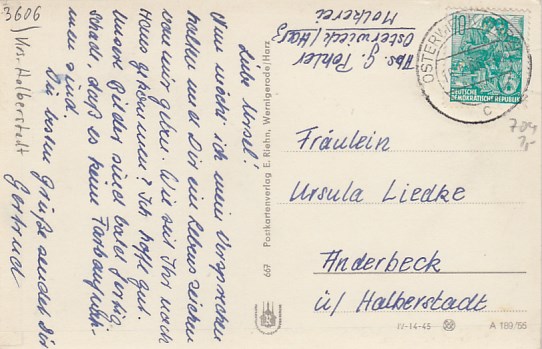 3606
Krs. Halberstadt
Liebe Ursel!
Nun möcht ich mein Versprechen
halten und Dir ein Lebenszeichen
von mir geben. Wie seit Ihr nach
Haus gekommen? Ich hoffe gut.
Unsere Bilder sind bald fertig.
Schade, daß es keine Farbaufnah-
men sind.
Die besten Grüße sendet Dir
Gertrud
667 Postkartenverlag E. Riehn, Wernigerode/Harz
Abs. G. Pohler
Osterwieck/Harz
Molkerei
OSTERWIECK
c
10
DEUTSCHE
DEMOKRATISCHE REPUBLIK
Fräulein
Ursula Liedke
Anderbeck
ü/ Halberstadt
IV-14-45
A 189/55